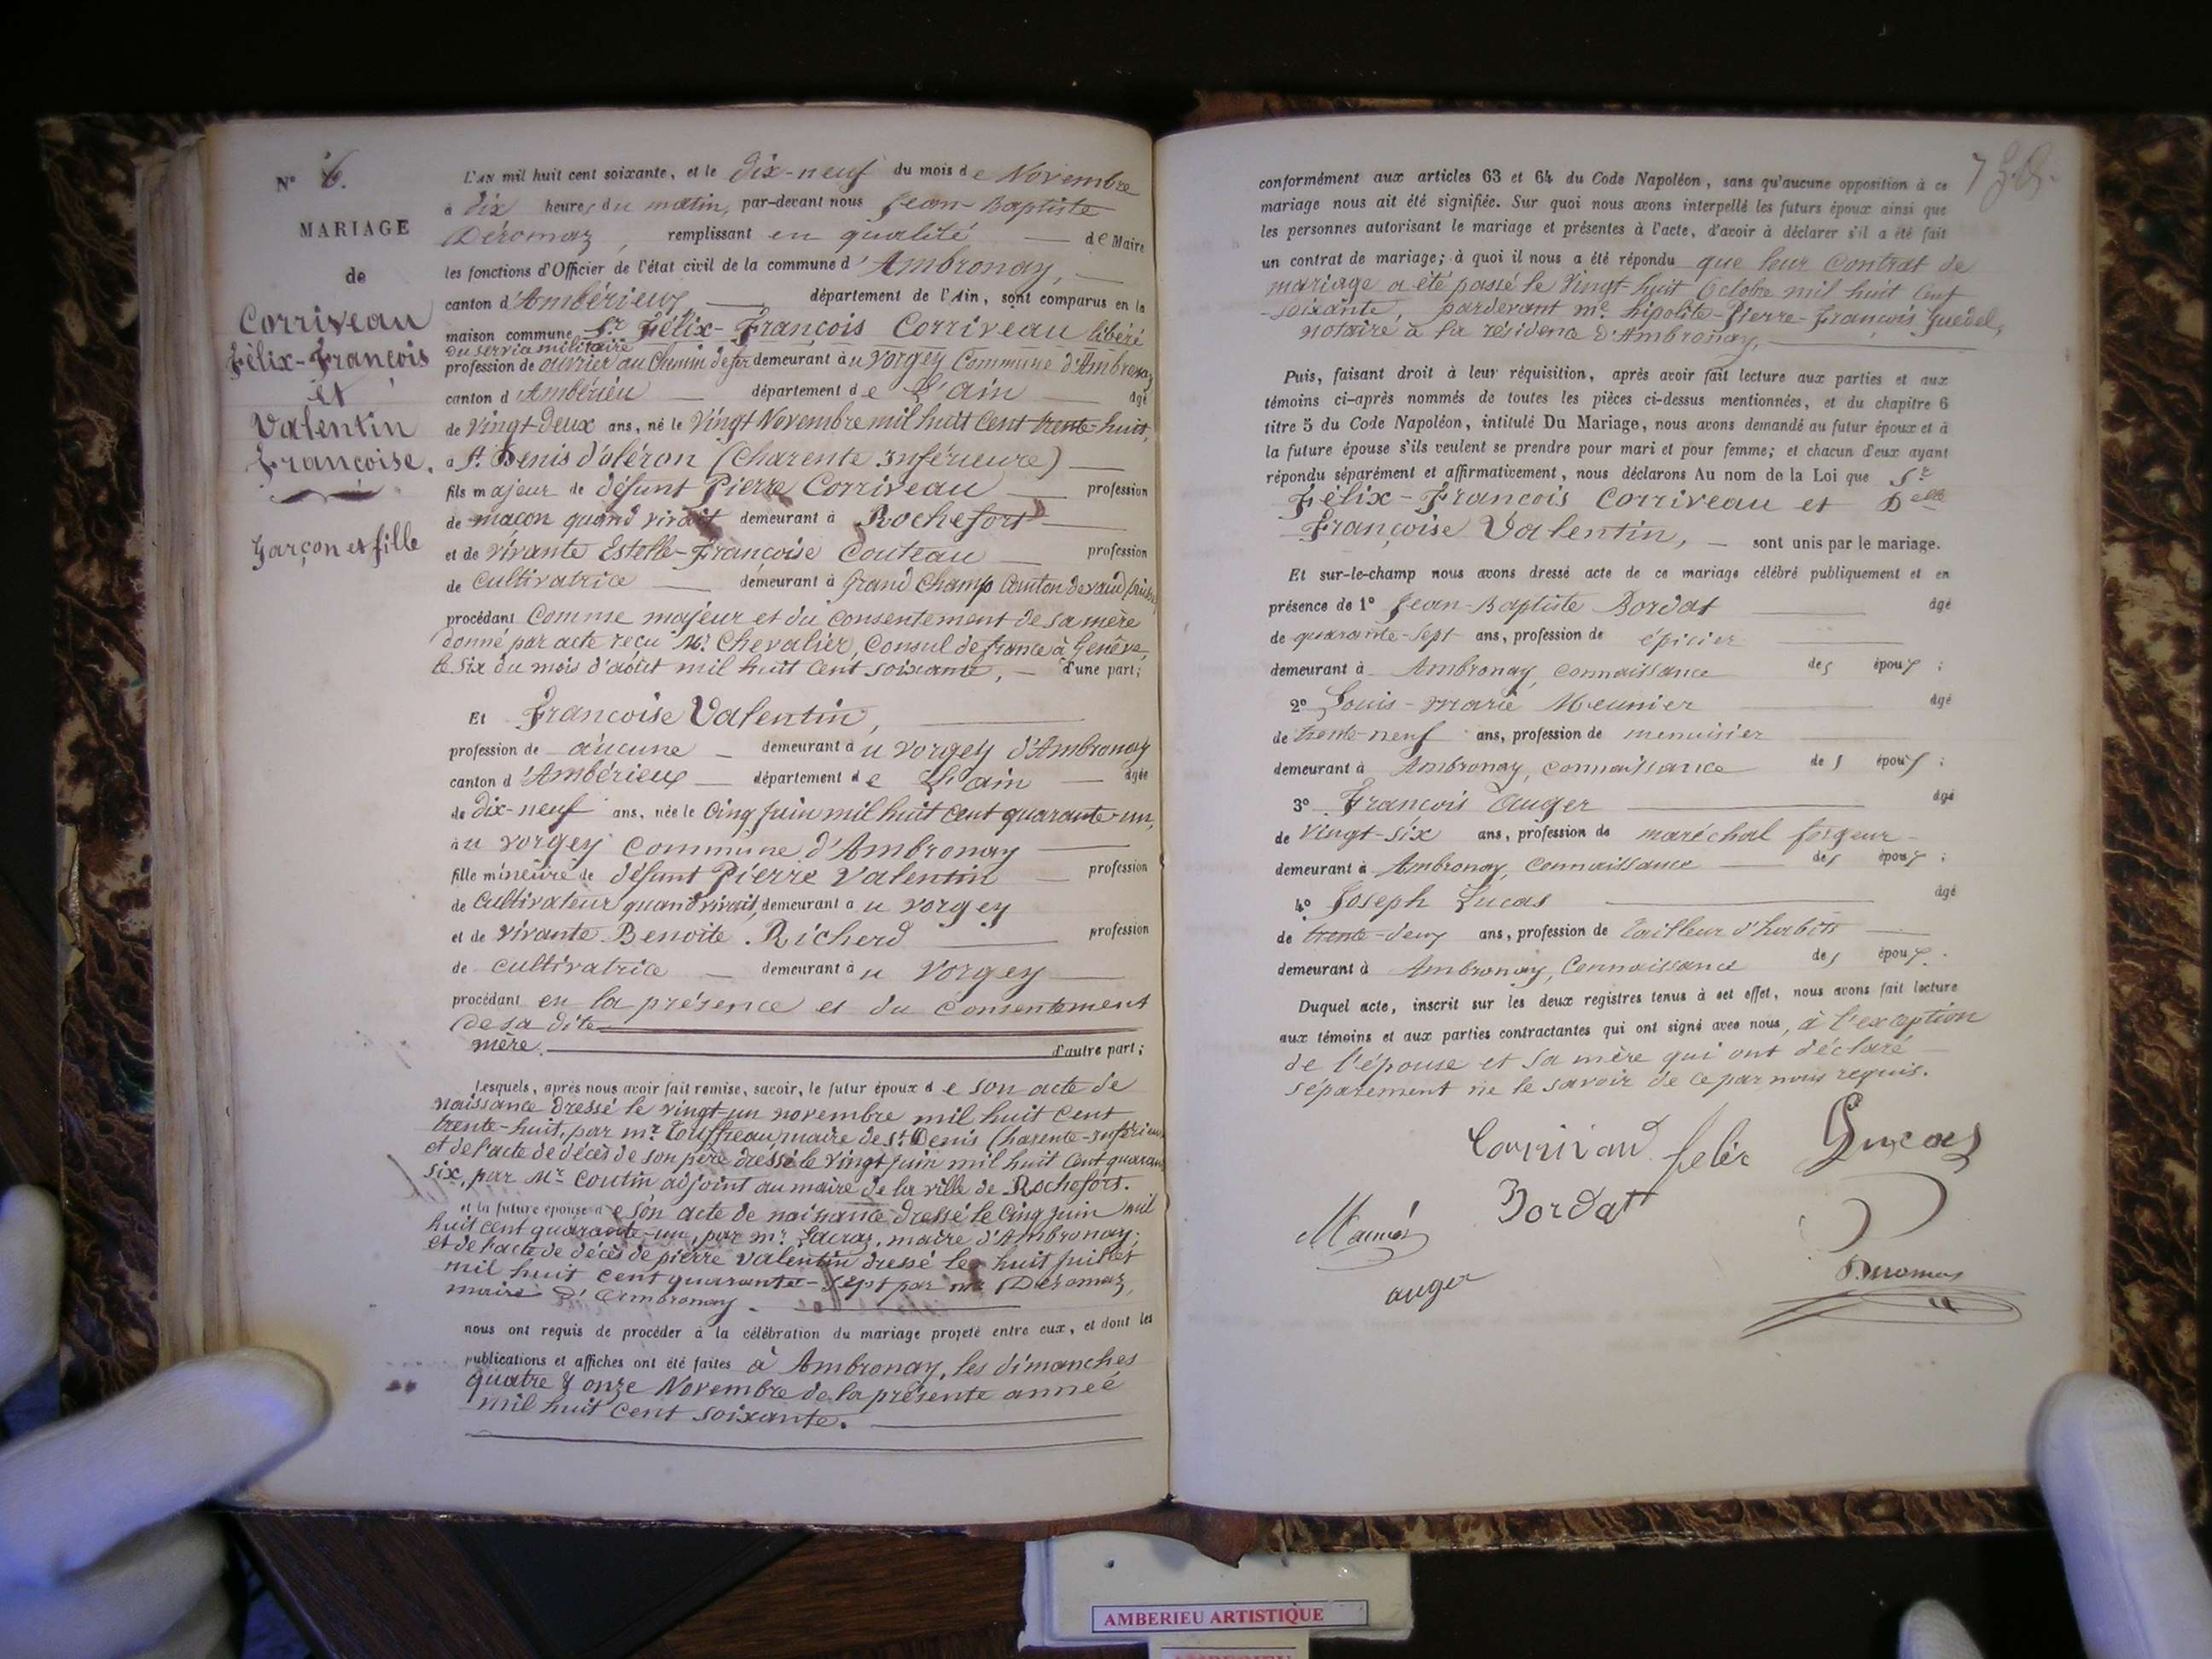 N° 6.
MARIAGE
de
Corriveau
Félix-François
et
Valentin
Françoise.
Garçon et fille
L'AN mil huit cent soixante, et le dix-neuf du mois de Novembre
à dix heures du matin, par-devant nous Jean-Baptiste
Déromaz, remplissant en qualité de Maire
les fonctions d'Officier de l'état civil de la commune d'Ambronay,
canton d'Ambérieux département de l'Ain, sont comparus en la
maison commune Sr Félix-François Corriveau libéré
du service militaire
profession de ouvrier au Chemin de fer demeurant au Vorgey Commune d'Ambronay
canton d'Ambérieu département de L'ain âgé
de vingt-deux ans, né le Vingt Novembre mil huit cent trente-huit,
à St. Denis d'oléron (Charente Inférieure)
fils majeur de défunt Pierre Corriveau profession
de maçon quand vivait demeurant à Rochefort
et de vivante Estelle-Françoise Couteau profession
de Cultivatrice demeurant à Grand Champ Canton de vaud
procédant Comme majeur et du consentement de sa mère
donné par acte reçu Mr. Chevalier, Consul de france à Genêve,
le six du mois d'août mil huit cent soixante, d'une part;
Et Francoise Valentin,
profession de aucune demeurant au vorgey d'Ambronay
canton d'Ambérieux département de L'ain âgée
de dix-neuf ans, née le Cinq Juin mil huit cent quarante-un,
au vorgey Commune d'Ambronay
fille mineure de défunt Pierre Valentin profession
de Cultivateur quand vivait, demeurant au vorgey
et de vivante Benoite Richerd profession
de cultivatrice demeurant au Vorgey
procédant en la présence et du Consentement
de sa dite
mère. d'autre part;
Lesquels, après nous avoir fait remise, savoir, le futur époux de son acte de
naissance dressé le vingt-un novembre mil huit cent
trente-huit, par mr. maire de St. Denis (Charente-Inférieure
et de l'acte de décès de son père dressé le vingt juin mil huit cent quarante
six, par Mr. Coutin adjoint au maire de la ville de Rochefort.
et la future épouse de son acte de naissance dressé le Cinq juin mil
huit cent quarante-un, par mr. maire d'Ambronay;
et de l'acte de décès de pierre Valentin dressé le huit juillet
mil huit cent quarante-sept par mr Déromaz,
maire d'Ambronay.
nous ont requis de procéder à la célébration du mariage projeté entre eux, et dont les
publications et affiches ont été faites à Ambronay, les dimanches
quatre & onze Novembre de la présente année
mil huit cent soixante.
conformément aux articles 63 et 64 du Code Napoléon, sans qu'aucune opposition à ce
mariage nous ait été signifiée. Sur quoi nous avons interpellé les futurs époux ainsi que
les personnes autorisant le mariage et présentes à l'acte, d'avoir à déclarer s'il a été fait
un contrat de mariage; à quoi il nous a été répondu que leur Contrat de
mariage a été passé le Vingt-huit Octobre mil huit cent
soixante, pardevant me. hipolite-Pierre-François Guedel,
notaire à la résidence d'Ambronay,
Puis, faisant droit à leur réquisition, après avoir fait lecture aux parties et aux
témoins ci-après nommés de toutes les pièces ci-dessus mentionnées, et du chapitre 6
titre 5 du Code Napoléon, intitulé Du Mariage, nous avons demandé au futur époux et à
la future épouse s'ils veulent se prendre pour mari et pour femme; et chacun d'eux ayant
répondu séparément et affirmativement, nous déclarons Au nom de la Loi que Sr
Félix-Francois Corriveau et Delle
Françoise Valentin, sont unis par le mariage.
Et sur-le-champ nous avons dressé acte de ce mariage célébré publiquement et en
présence de 1° Jean-Baptiste Bordat âgé
de quarante-sept ans, profession de épicier
demeurant à Ambronay, connaissance des époux;
2° Louis-marie Meunier âgé
de trente-neuf ans, profession de menuisier
demeurant à Ambronay, connaissance des époux;
3° François Auger âgé
de vingt-six ans, profession de maréchal forgeur
demeurant à Ambronay, Connaissance des époux;
4° Joseph Lucas âgé
de trente-deux ans, profession de tailleur d'habits
demeurant à Ambronay, Connaissance des époux.
Duquel acte, inscrit sur les deux registres tenus à cet effet, nous avons fait lecture
aux témoins et aux parties contractantes qui ont signé avec nous, à l'exception
de l'épouse et sa mère qui ont déclaré
séparement ne le savoir de ce par nous requis.
Corriveau felix Lucas
Bordat
auger
Deromas
AMBERIEU ARTISTIQUE
AMBERIEU